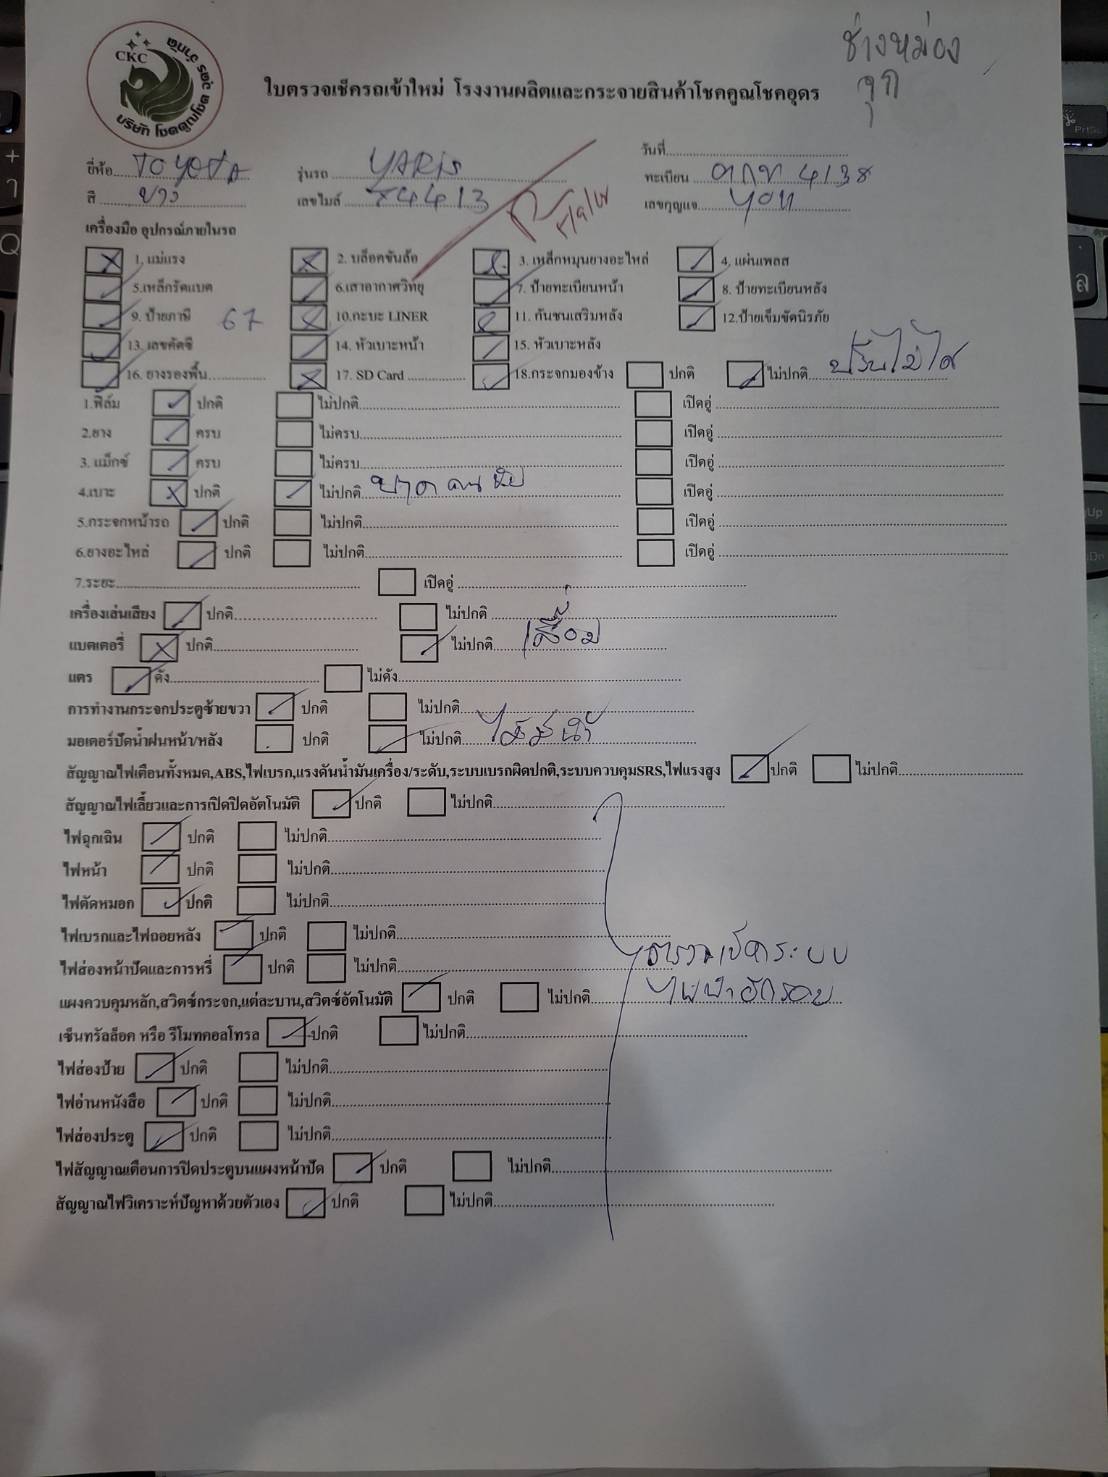 ช่างหม่อง
CKC
บริษัท โชคคูณโชค อุดร จำกัด
ใบตรวจเช็ครถเข้าใหม่ โรงงานผลิตและกระจายสินค้าโชคคูณโชคอุดร
วันที่
ยี่ห้อ TOYOTA รุ่นรถ YARIS ทะเบียน 4138
สี ขาว เลขไมล์ 84413 เลขกุญแจ
เครื่องมือ อุปกรณ์ภายในรถ
1. แม่แรง 2. บล็อคขันล้อ 3. เหล็กหมุนยางอะไหล่ 4. แผ่นเพลส
5.เหล็กรัดแบต 6.เสาอากาศวิทยุ 7. ป้ายทะเบียนหน้า 8. ป้ายทะเบียนหลัง
9. ป้ายภาษี 67 10.กะบะ LINER 11. กันชนเสริมหลัง 12.ป้ายเข็มขัดนิรภัย
13. เลขคัตซี 14. หัวเบาะหน้า 15. หัวเบาะหลัง
16. ยางรองพื้น 17. SD Card 18.กระจกมองข้าง ปกติ ไม่ปกติ ปรับไม่ได้
1.ฟิล์ม ปกติ ไม่ปกติ เปิดอู่
2.ยาง ครบ ไม่ครบ เปิดอู่
3. แม็กซ์ ครบ ไม่ครบ เปิดอู่
4.เบาะ ปกติ ไม่ปกติ ขาด คนขับ เปิดอู่
5.กระจกหน้ารถ ปกติ ไม่ปกติ เปิดอู่
6.ยางอะไหล่ ปกติ ไม่ปกติ เปิดอู่
7.ระยะ เปิดอู่
เครื่องเล่นเสียง ปกติ ไม่ปกติ
แบตเตอรี่ ปกติ ไม่ปกติ เสื่อม
แตร ดัง ไม่ดัง
การทำงานกระจกประตูซ้ายขวา ปกติ ไม่ปกติ
มอเตอร์ปัดน้ำฝนหน้า/หลัง ปกติ ไม่ปกติ ไม่มีน้ำ
สัญญาณไฟเตือนทั้งหมด,ABS,ไฟเบรก,แรงดันน้ำมันเครื่อง/ระดับ,ระบบเบรกผิดปกติ,ระบบควบคุมSRS,ไฟแรงสูง ปกติ ไม่ปกติ
สัญญาณไฟเลี้ยวและการเปิดปิดอัตโนมัติ ปกติ ไม่ปกติ
ไฟฉุกเฉิน ปกติ ไม่ปกติ
ไฟหน้า ปกติ ไม่ปกติ
ไฟตัดหมอก ปกติ ไม่ปกติ
ไฟเบรกและไฟถอยหลัง ปกติ ไม่ปกติ
ไฟส่องหน้าปัดและการหรี่ ปกติ ไม่ปกติ ตรวจเช็คระบบ
แผงควบคุมหลัก,สวิตช์กระจก,แต่ละบาน,สวิตช์อัตโนมัติ ปกติ ไม่ปกติ ไฟฟ้าอีกรอบ
เซ็นทรัลล็อค หรือ รีโมทคอลโทรล ปกติ ไม่ปกติ
ไฟส่องป้าย ปกติ ไม่ปกติ
ไฟอ่านหนังสือ ปกติ ไม่ปกติ
ไฟส่องประตู ปกติ ไม่ปกติ
ไฟสัญญาณเตือนการปิดประตูบนแผงหน้าปัด ปกติ ไม่ปกติ
สัญญาณไฟวิเคราะห์ปัญหาด้วยตัวเอง ปกติ ไม่ปกติ